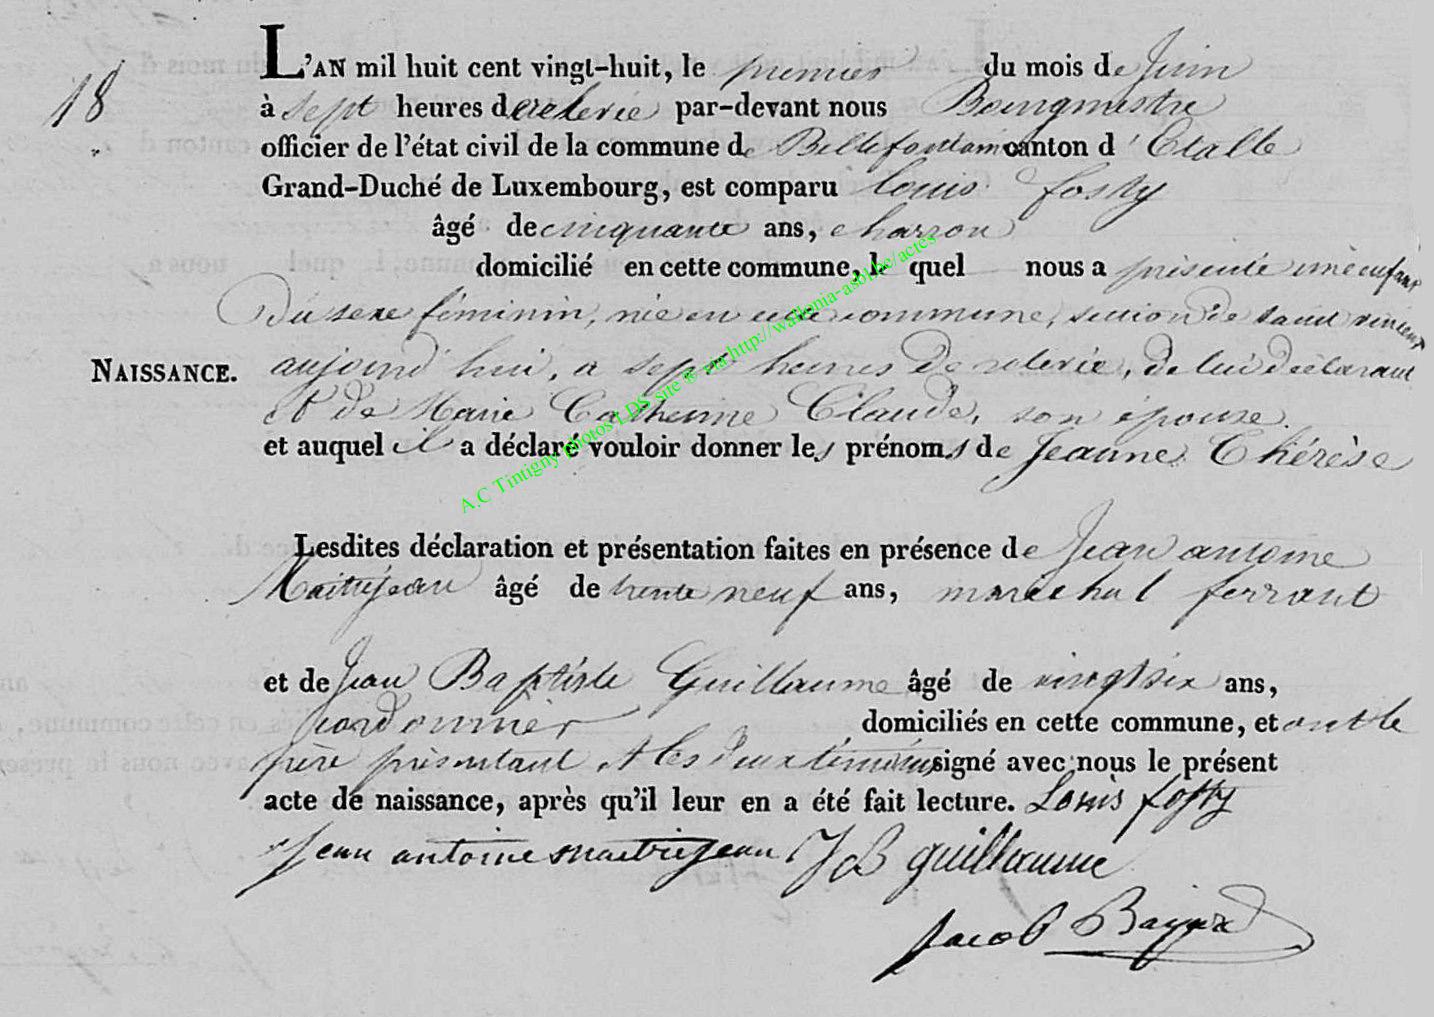 18
L'AN mil huit cent vingt-huit, le premier du mois de Juin
à sept heures de relevée par-devant nous Bourgmestre
officier de l'état civil de la commune de Bellefontaine canton d'Etalle
Grand-Duché de Luxembourg, est comparu Louis fosty
âgé de cinquante ans, charron
domicilié en cette commune, le quel nous a présenté une enfant
Du sexe féminin, née en cette commune, section de saint vincent
NAISSANCE. aujourd'hui, a sept heures De relevée, de lui déclarant
et de Marie Catherine Claude, son épouse.
et auquel il a déclaré vouloir donner les prénoms de Jeanne Thérèse
A.C Tintigny photos LDS site ® via http://wallonia-asbl.be/actes
Lesdites déclaration et présentation faites en présence de Jean antoine
Maitrejean âgé de trente neuf ans, maréchal ferrant
et de Jean Baptiste Guillaume âgé de vingt six ans,
cordonnier domiciliés en cette commune, et ont le
père présentant et les deux témoins signé avec nous le présent
acte de naissance, après qu'il leur en a été fait lecture. Louis fosty
Jean antoine maitrejean JB guillaume
Jacob